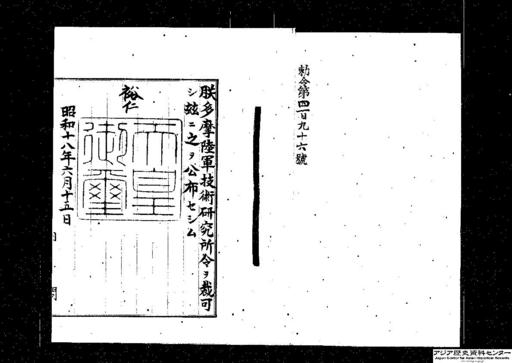 勅令第四百九十六號
朕多摩陸軍技術研究所令ヲ裁可
シ玆ニ之ヲ公布セシム
裕仁
天皇
御璽
昭和十八年六月十五日
アジア歴史資料センター
Japan Center for Asian Historical Records